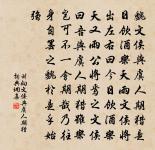 魏文侯與虞人期獵是
日飲酒樂天雨文侯將
出左右曰今日飲酒樂
天又雨公將焉之文侯
曰吾與虞人期獵雖樂
豈可不一會期哉乃往
身自罷之魏於是乎始
強